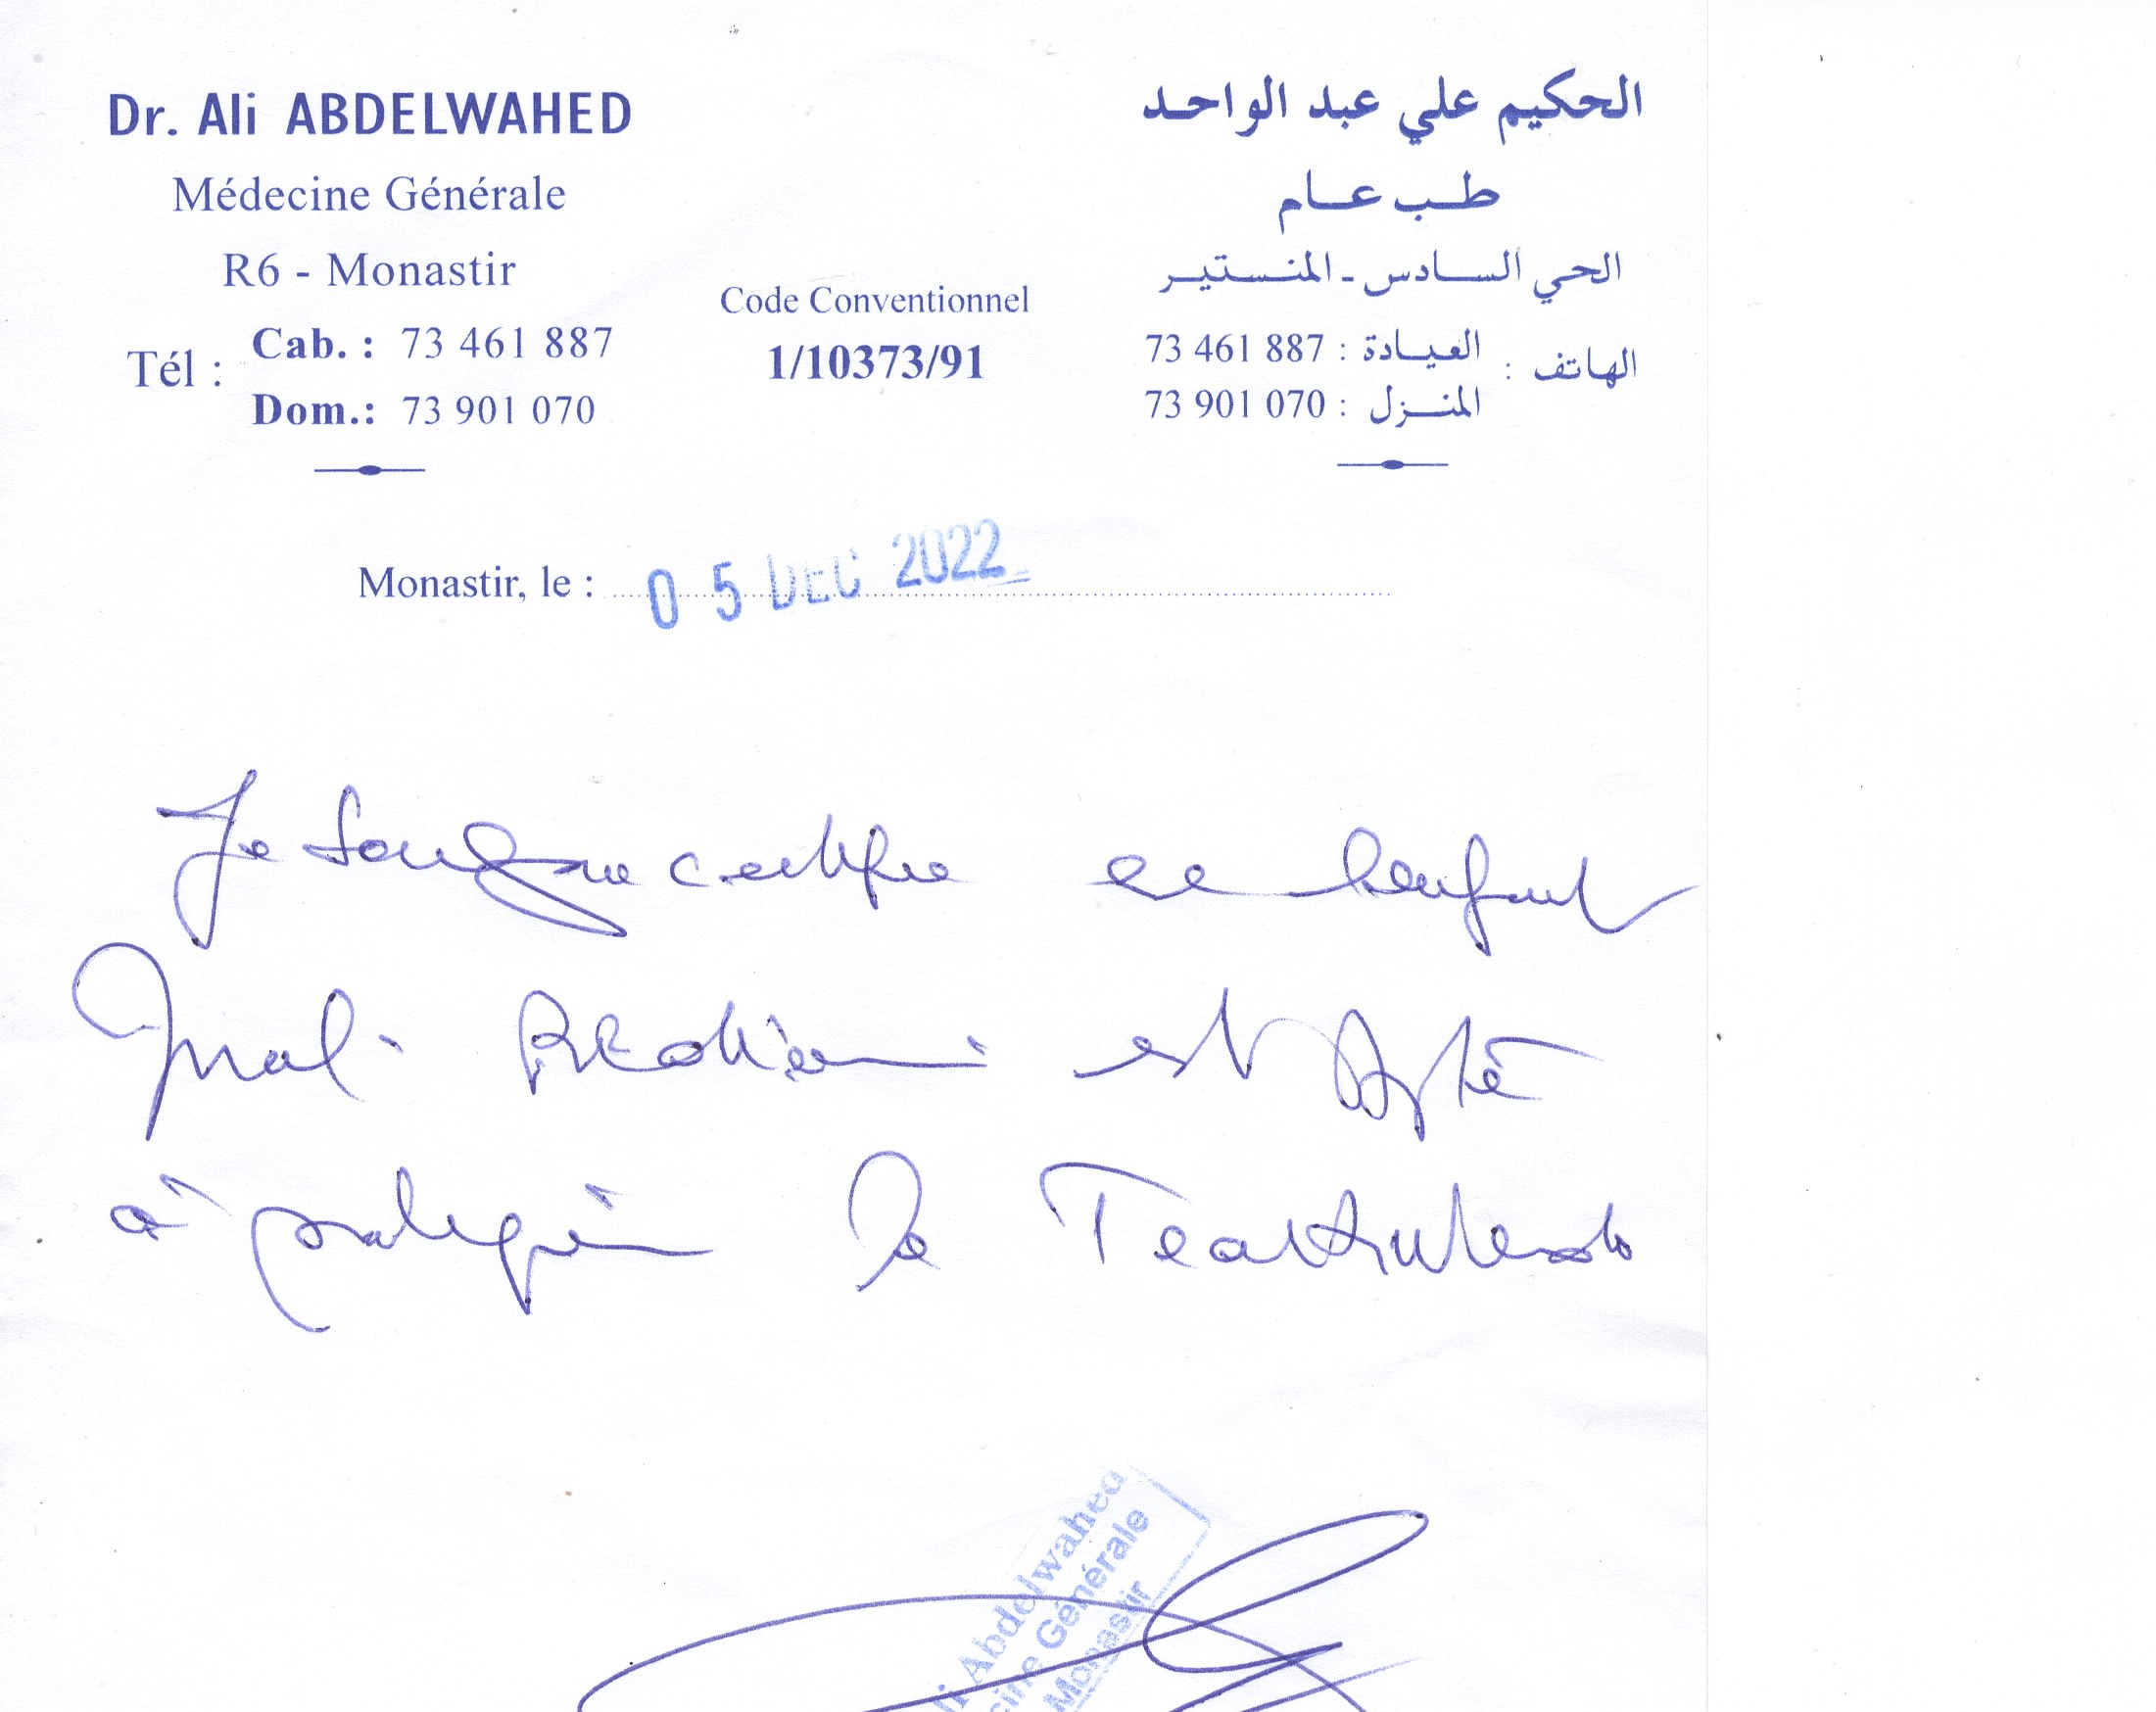 Dr. Ali ABDELWAHED
Médecine Générale
R6 - Monastir
Tél :
Cab. : 73 461 887
Dom.: 73 901 070
Code Conventionnel
1/10373/91
الحكيم علي عبد الواحد
طب عام
الحي السادس - المنستير
الهاتف :
العيادة : 73 461 887
المنزل : 73 901 070
Monastir, le : 05 DEC 2022
Je certifie l'enfant
est
à le
Abdelwahed
Générale
Monastir